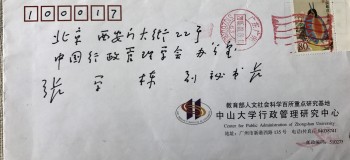 100017
北京西安门大街22号
中国行政管理学会办公室
张学栋 副秘书长
教育部人文社会科学百所重点研究基地
中山大学行政管理研究中心
Center for Public Administration of Zhongshan University
地址:广州市新港西路135号